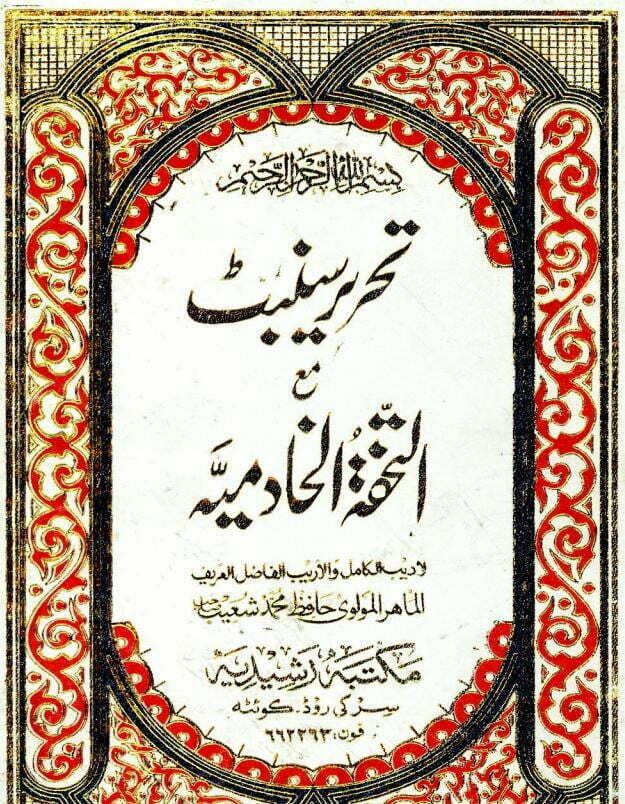 بسم الله الرحمن الرحيم
تحریر سنبٹ
مع
التحفةُ الخادمیَّه
لاديب الكامل والاريب الفاضل العريف
الماهر المولوى حافظ محمد شعيب
مكتبه رشيديه
سرکی روڈ۔ کوئٹه
فون: ٦٦٢٢٦٣